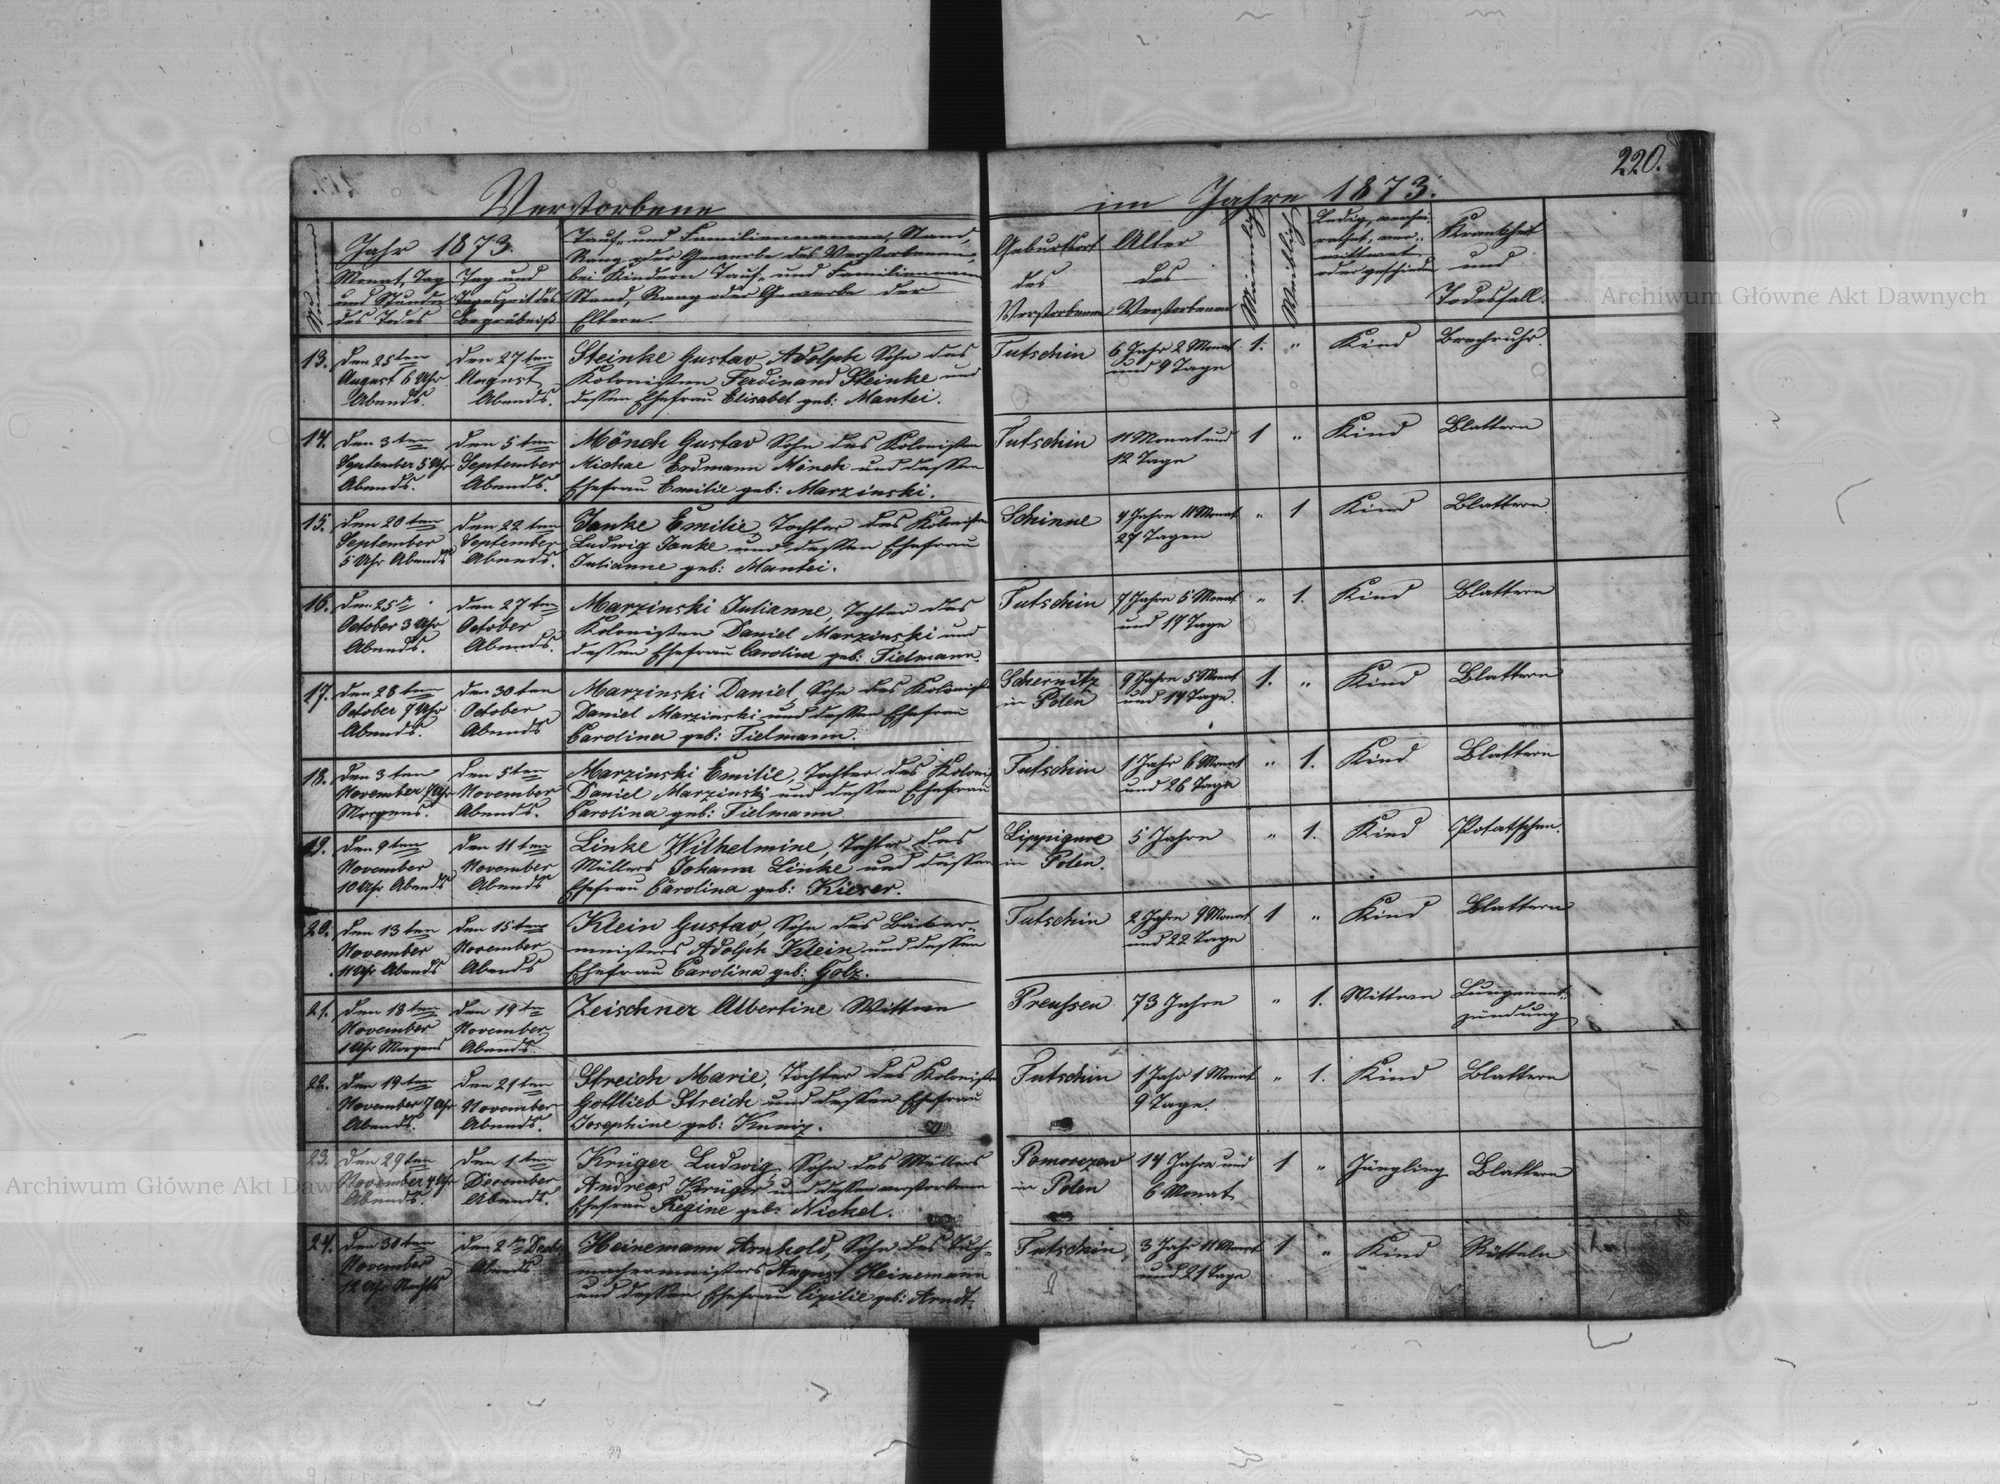 220.
Verstorbene im Jahre 1873.
Jahr 1873.
Monat, Tag
und Stunde
des Todes
Tag und
Tageszeit des
Begräbniß
Tauf- und Familiennamen, Stand,
Rang oder Gewerbe des Verstorbenen,
bei Kindern Tauf- und Familiennamen
Stand, Rang oder Gewerbe der
Eltern.
Geburtsort
des
Verstorbenen
Alter
des
Verstorbenen
Männlich
Weiblich
Ledig, verhei-
rathet, ver-
wittwet
oder geschieden
Krankheit
und
Todesfall.
13.
den 25ten
August 6 Uhr
Abends.
den 27ten
August
Abends.
Steinke Gustav Adolph Sohn des
Kolonisten Ferdinand Steinke und
dessen Ehefrau Elisabet geb: Mantei.
Tutschin
6 Jahr 2 Monat
und 9 Tage
1. " Kind
Brechruhr.
14.
den 3ten
September 5 Uhr
Abends.
den 5ten
September
Abends.
Mönch Gustav Sohn des Kolonisten
Michae Erdmann Mönch und dessen
Ehefrau Emilie geb: Marzinski.
Tutschin
11 Monat und
12 Tage
1 " Kind
Blattern
15.
den 20ten
September
5 Uhr Abends
den 22ten
September
Abends.
Janke Emilie, Tochter des Koloniste
Ludwig Janke und dessen Ehefrau
Julianne geb: Mantei.
Schinne
4 Jahre 11 Monat
27 Tagen
" 1 Kind
Blattern
16.
den 25
October 3 Uhr
Abends.
den 27ten
October
Abends.
Marzinski Julianne, Tochter des
Kolonisten Daniel Marzinski und
dessen Ehefrau Caroline geb: Tielmann.
Tutschin
7 Jahre 5 Monat
und 17 Tage
" 1. Kind
Blattern
17.
den 28ten
October 7 Uhr
Abends.
den 30ten
October
Abends
Marzinski Daniel, Sohn des Kolonist
Daniel Marzinski und dessen Ehefrau
Carolina geb: Tielmann.
Schernitz
in Polen
9 Jahre 5 Monat
und 14 Tage.
1. " Kind
Blattern
18.
den 3ten
November 7 Uhr
Morgens.
den 5ten
November
Abends.
Marzinski Emilie, Tochter des Kolonist
Daniel Marzinski und dessen Ehefrau
Carolina geb: Tielmann
Tutschin
1 Jahr 6 Monat
und 26 Tage
" 1. Kind
Blattern
19.
den 9ten
November
10 Uhr Abends
den 11ten
November
Abends
Linke Wilhelmine, Tochter des
Müllers Johann Linke und dessen
Ehefrau Carolina geb: Kieser.
in Polen.
5 Jahre
" 1. Kind
20.
den 13ten
November
11 Uhr Abends
den 15ten
November
Abends
Klein Gustav, Sohn des Bäcker-
meisters Adolph Klein und dessen
Ehefrau Carolina geb: Golz.
Tutschin
2 Jahre 9 Monat
und 22 Tage
1 " Kind
Blattern
21.
den 18ten
November
1 Uhr Morgens
den 19
November
Abends.
Zeischner Albertine Wittwe
Preussen
73 Jahre
" 1. Wittwe
Lungenent-
zündung
22.
den 19ten
November 7 Uhr
Abends.
den 21ten
November
Abends.
Streich Marie, Tochter des Koloniste
Gottlieb Streich und dessen Ehefrau
Josephine geb:
Tutschin
1 Jahr 1 Monat
9 Tage.
" 1. Kind
Blattern
23.
den 29ten
November 4 Uhr
Abends.
den 1ten
December
Abends.
Krüger Ludwig Sohn des Müllers
Andreas Krüger und dessen verstorbene
Ehefrau Regine geb: Nickel.
Pomorezew
in Polen
14 Jahre und
6 Monat
1 " Jüngling
Blattern
24.
den 30ten
November
12 Uhr Nachts
den 2
Abends.
Heinemann Arnhold, Sohn des Tuch-
machermeisters August Heinemann
und dessen Ehefrau geb: Arndt.
Tutschin
3 Jahr 11 Monat
und 21 Tage
1 " Kind
Rötteln
Archiwum Główne Akt Dawnych
Archiwum Główne Akt Dawnych